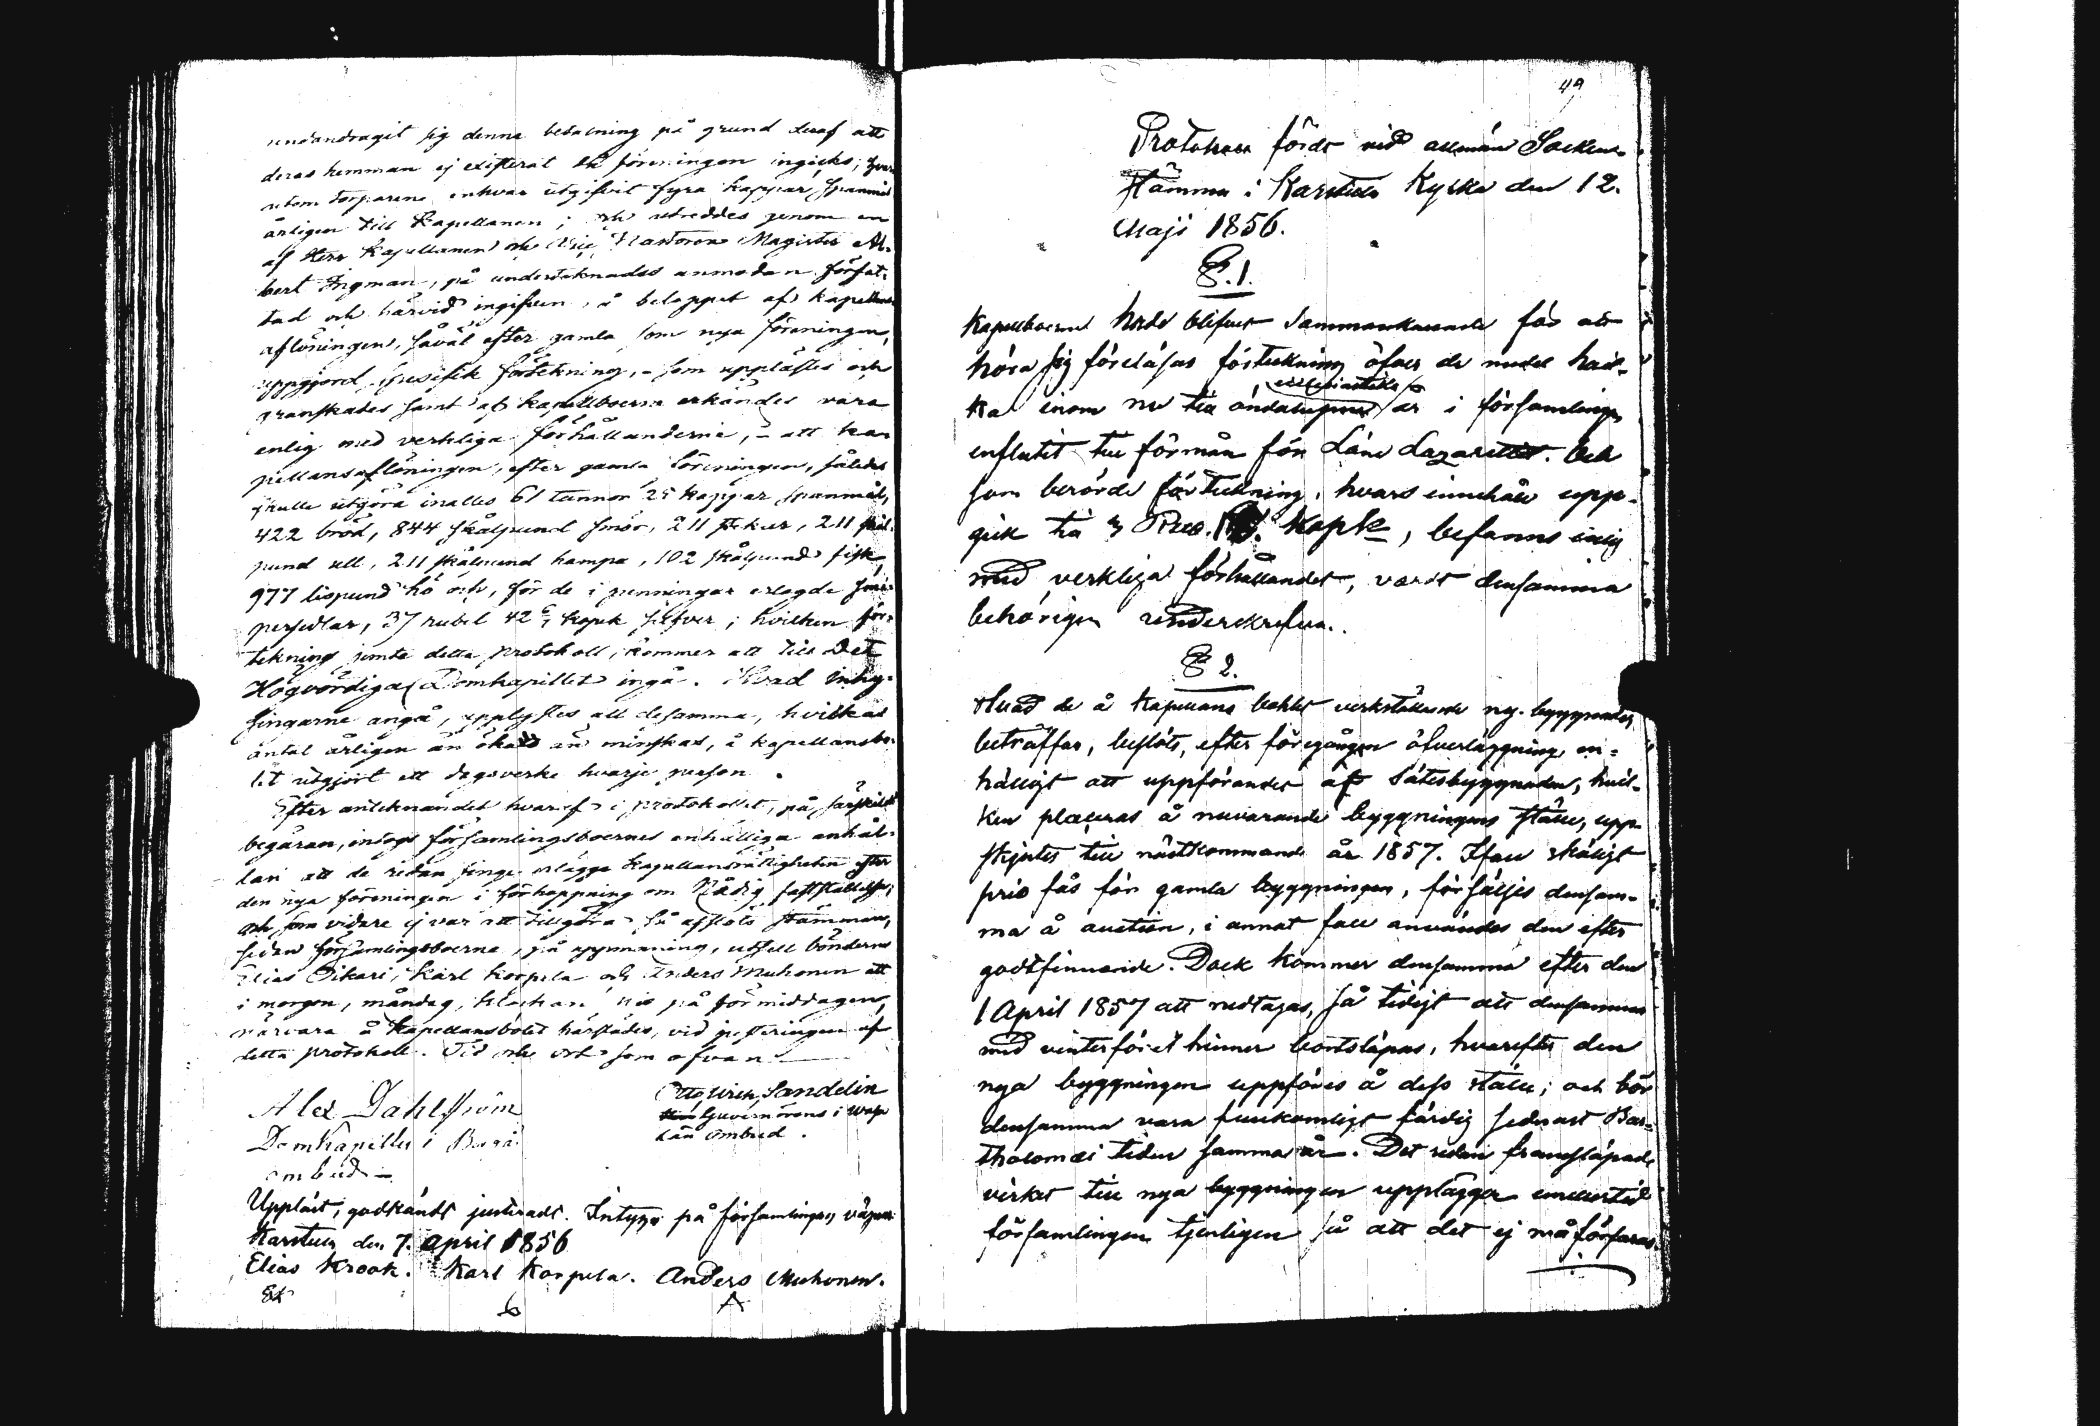 undandragit sig denna betalning på grund deraf att
deras hemman ej existerat då föreningen ingicks; hvar-
utom torparene enhvar utgifvit fyra kappar spannmål
årligen till Kapellanen; och utreddes genom en
af Herr Kapellanen och Vice Pastoren Magister Al-
bert Ingman, på undertecknades anmodan författ-
tad och härvid ingifven, å beloppet af kapellans
aflöningen, såväl efter gamla som nya föreningen,
uppgjord specifik förtekning, - som upplästes och
granskades samt af kapellboerne erkändes vara
enlig med verkliga förhållanderne, - att ka-
pellansaflöningen, efter gamla föreningen, således
skulle utgöra inalles 61 tunnor 25 kappar spannmål,
422 bröd, 844 skålpund smör, 211 stekar, 211 skål-
pund ull, 211 skålpund hampa, 102 skålpund fisk,
977 lispund hö och, för de i penningar erlagde smär-
persedlar, 37 rubel 42 kopek silfver; hvilken för-
tekning jemte detta protokoll, kommer att till Det
Högvördiga Domkapitlet ingå. Hvad inhy-
singarne angå, upplystes att desamma, hvilkas
antal årligen än ökats än minskas, å kapellansbo-
let utgjort ett dagsverke hvarje person.
Efter antecknandet hvaraf i protokollet, på särskild
begäran, intogs församlingsboernes enhälliga anhål-
lan att de redan finge erlägga Kapellansrättigheten efter
den nya föreningen i förhoppning om Nådig fastställelse;
och som vidare ej var att tillgöra så afslöts stämman,
sedan församlingsboerne, på uppmaning, utsett bönderne
Elias Oikari, Karl Korpela och Anders Muhonen att
i morgon, måndag, klockan nio på förmiddagen,
närvara å Kapellansbolet härstädes, vid justeringen af
detta protokoll. Tid och ort som ofvan.
Otto Ulrik Sandelin
Guvernörens i Wasa
Län ombud.
Alex Dahlström
Domkapitlets i Borgå
ombud -
Uppläst, godkändt justeradt. Intyga på församlingens vägnar
Karstula den 7. April 1856
Elias Krook. Karl Korpela. Anders Muhonen.
49
Protokoll fördt vid allmän Sockne-
stämma i Karstula Kyrka den 12.
Maji 1856.
§.1.
Kapellboerne hade blifvit sammankallade för att
höra sig föreläsas förteckning öfver de medel hvil-
ka inom nu till ändalupne ecclesiastika år i församlingen
influtit till förmån för Läns Lazarettet. Och
som berörde förteckning, hvars innehåll upp-
gick till 3 Rub. kopk, befanns enlig
med verkliga förhållandet, vardt densamma
behörigen underskrefven.
§ 2.
Hvad de å Kapellans bohlet verkställande ny-byggnader
beträffar, beslöts, efter föregången öfverläggning en-
hälligt att uppförandet af Sätesbyggnaden, hvil-
ken placeras å nuvarande byggningens ställe, upp-
skjutes till nästkommande år 1857. Ifall skäligt
pris fås för gamla byggningen, försäljes densam-
ma å auction, i annat fall användes den efter
godtfinnande. Dock kommer densamma efter den
1 April 1857 att nedtagas, så tidigt att densamma
med vinterföret hinner bortsläpas, hvarefter den
nya byggningen uppföres å dess ställe; och bör
densamma vara fullkomligt färdig sednast Bar-
tholomæi tiden samma år. Det redan framsläpade
virket till nya byggningen upplägger emellertid
församlingen tjenligen så att det ej må förfaras.